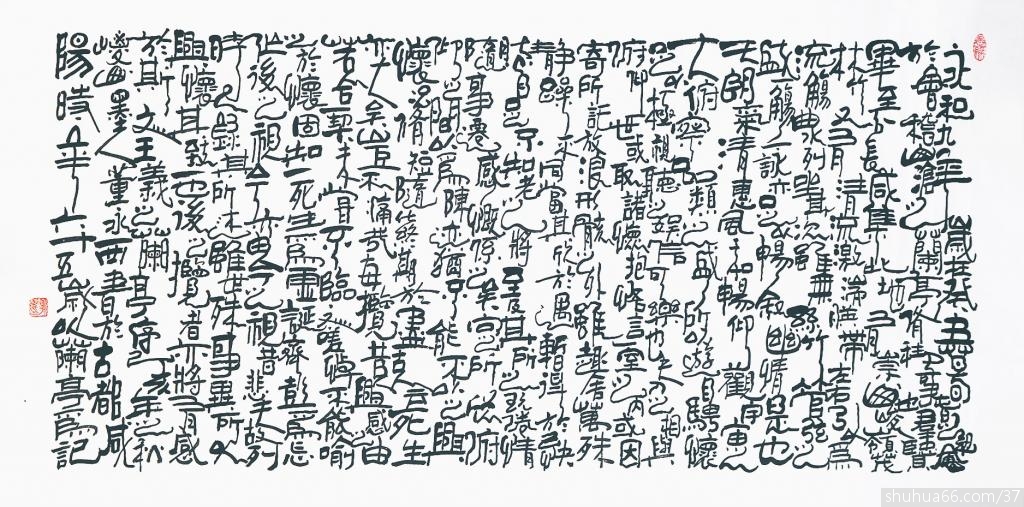 永和九年歲在癸丑暮春之初會
於會稽山陰之蘭亭脩禊事也群賢
畢至少長咸集此地有崇山峻嶺茂
林脩竹又有清流激湍映帶左右引以為
流觴曲水列坐其次雖無絲竹管弦之
盛一觴一詠亦足以暢敘幽情是日也
天朗氣清惠風和暢仰觀宇宙之
大俯察品類之盛所以遊目騁懷
足以極視聽之娛信可樂也夫人之相與
俯仰一世或取諸懷抱悟言一室之內或因
寄所託放浪形骸之外雖趣舍萬殊
靜躁不同當其欣於所遇暫得於己快
然自足不知老之將至及其所之既倦情
隨事遷感慨係之矣向之所欣俯
仰之間以為陳迹猶不能不以之興
懷況脩短隨化終期於盡古人云死生
亦大矣豈不痛哉每攬昔人興感之由
若合一契未嘗不臨文嗟悼不能喻
之於懷固知一死生為虛誕齊彭殤為妄
作後之視今亦由今之視昔悲夫故列
時人錄其所述雖世殊事異所以
興懷其致一也後之攬者亦將有感
於斯文王羲之蘭亭序丁亥年之秋
山墨人董永西書於古都咸
陽時年六十五歲以蘭亭為記
shuhua66.com/37